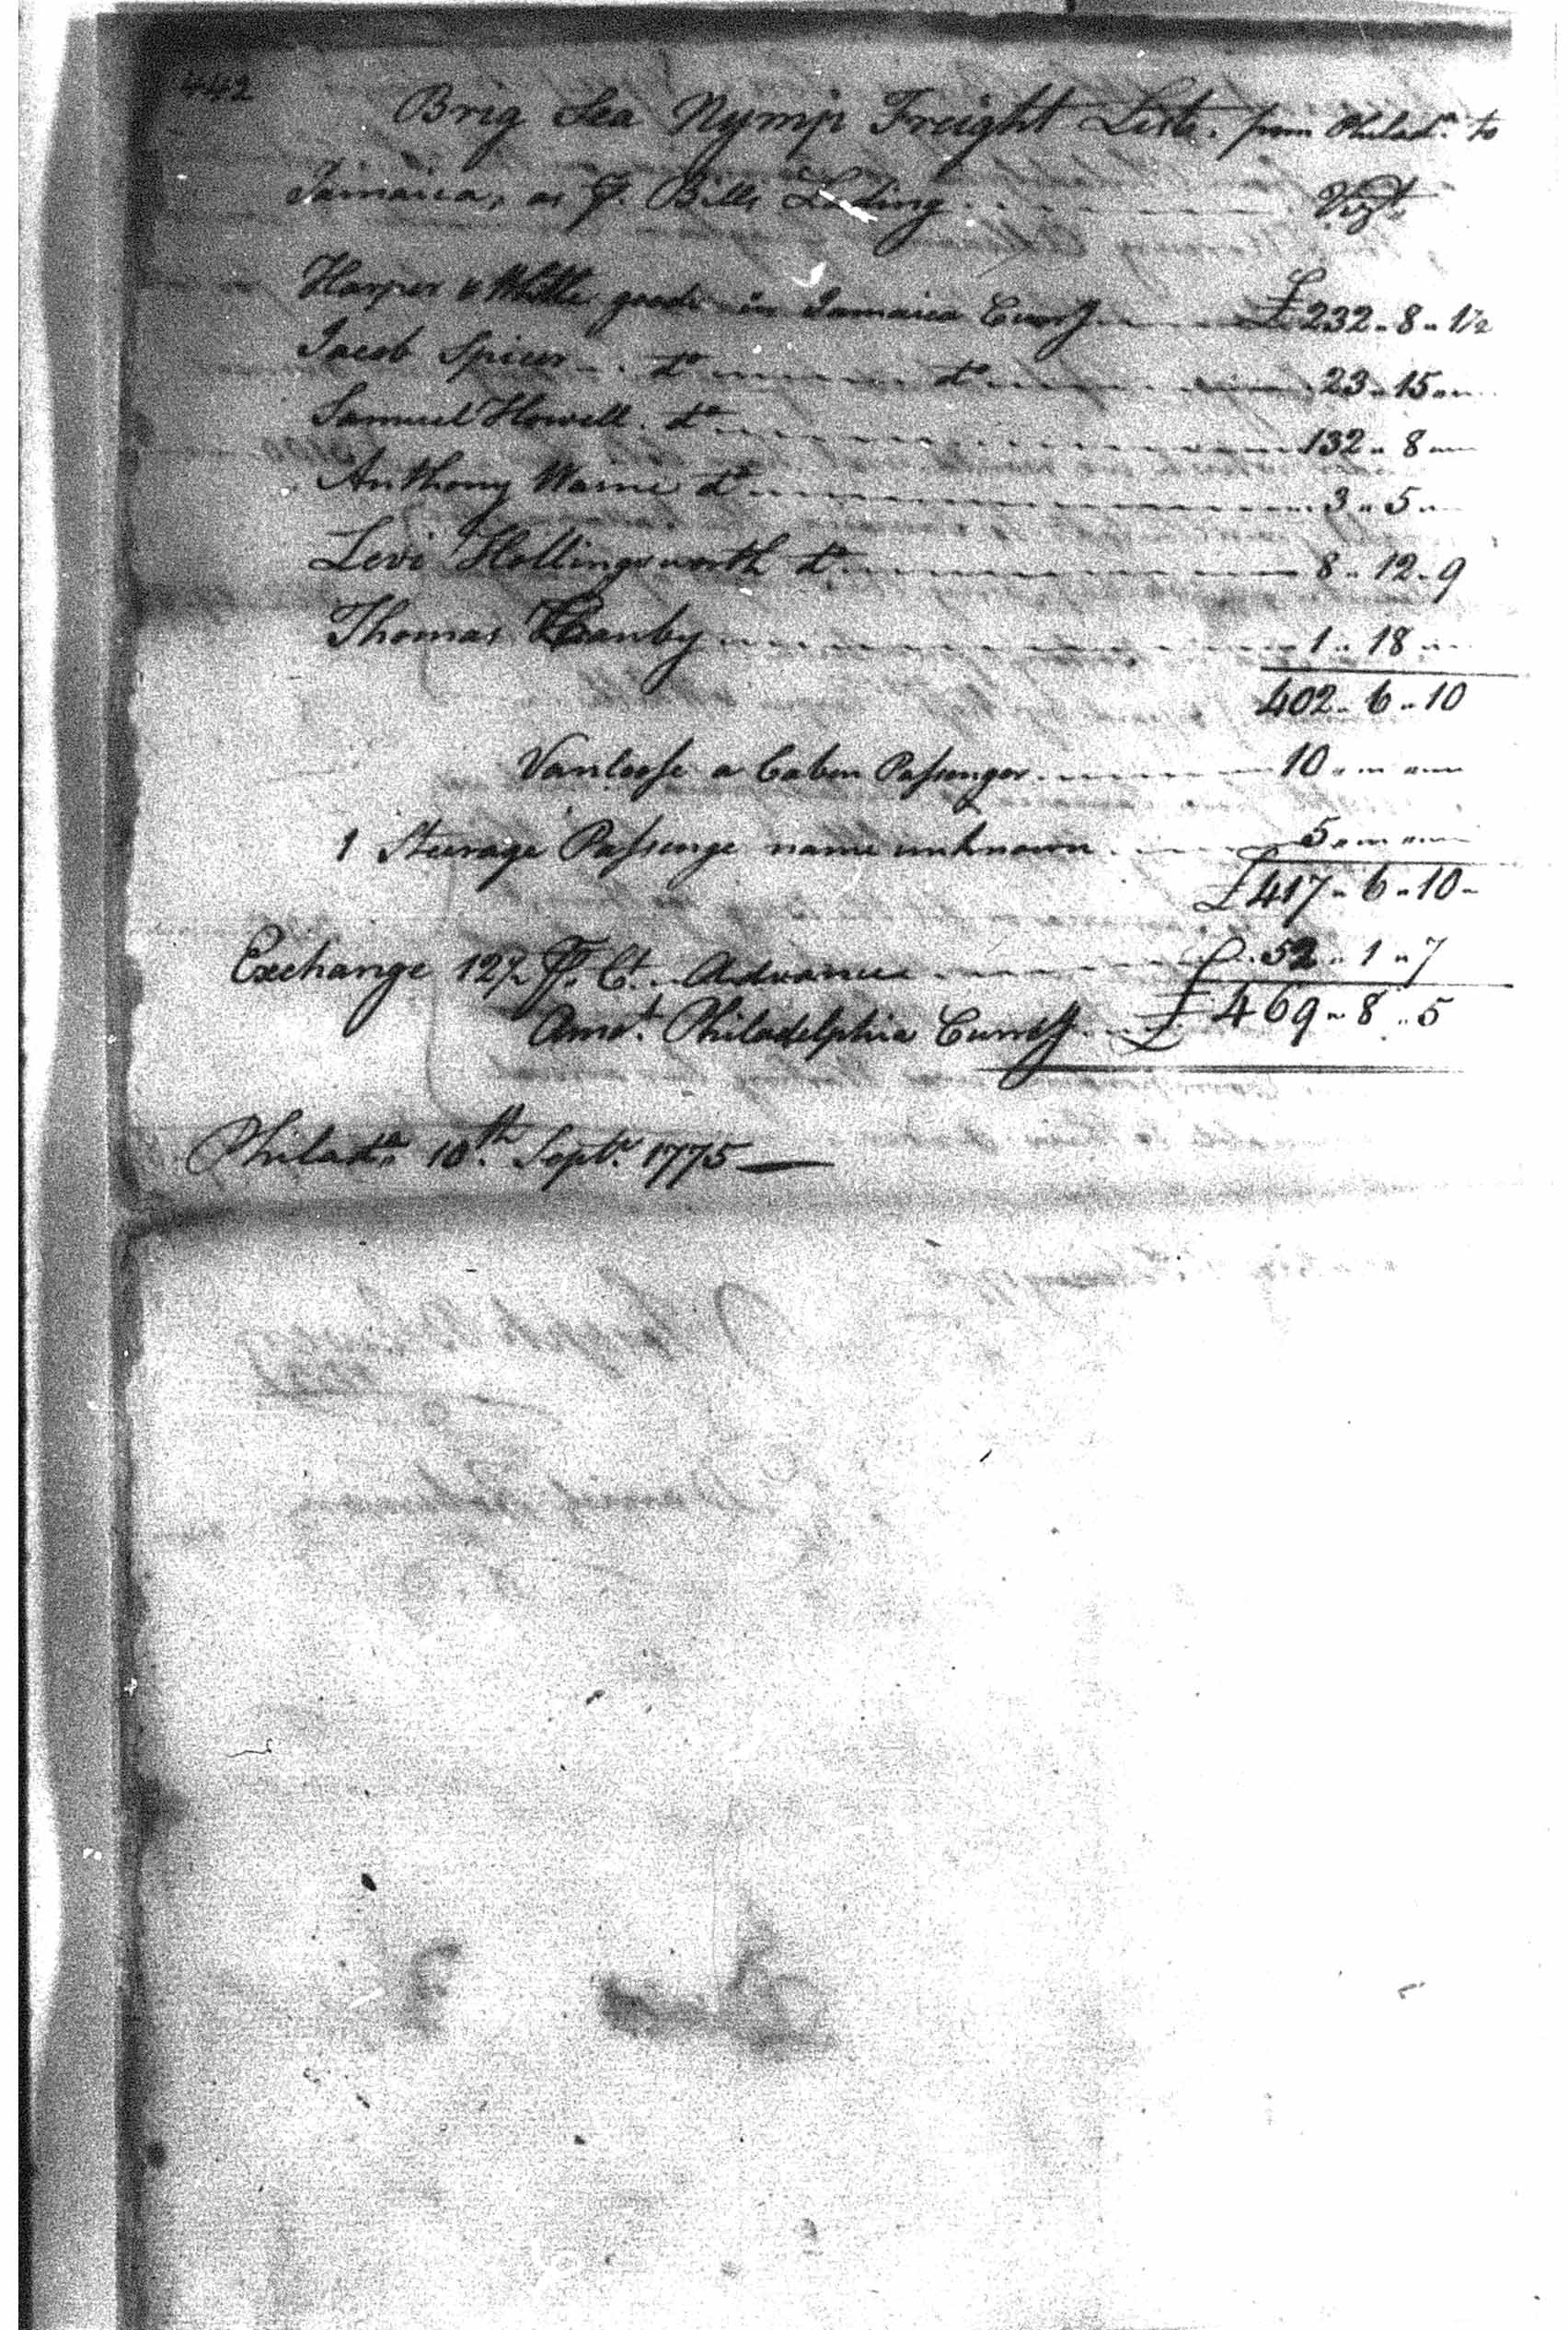 442
Brig Sea Nymp Freight List. from Philada. to
Jamaica, as ⅌. Bills Lading . . . . Vizt.
Harper & White goods in Jamaica Curry £232 .. 8 .. 1½
Jacob Spicer .. do do 23 .. 15 ..
Samuel Howell. do 132 .. 8
Anthony Warne do 3 .. 5 ..
Levi Hollingsworth do 8 .. 12 .. 9
Thomas Canby 1 .. 18 ..
402 .. 6 .. 10
Vanloose a Caben Passenger 10
1 Steerage Passenge name unknown 5
£417 .. 6 .. 10
Exchange 12½ ⅌. Ct. Advance £ 52 .. 1 .. 7
Amot. Philadelphia Curry £ 469 .. 8 .. 5
Philada. 10th. Septr. 1775